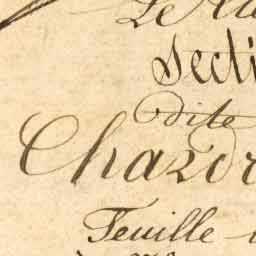 Le
Secti
dite
Chazor
Feuille